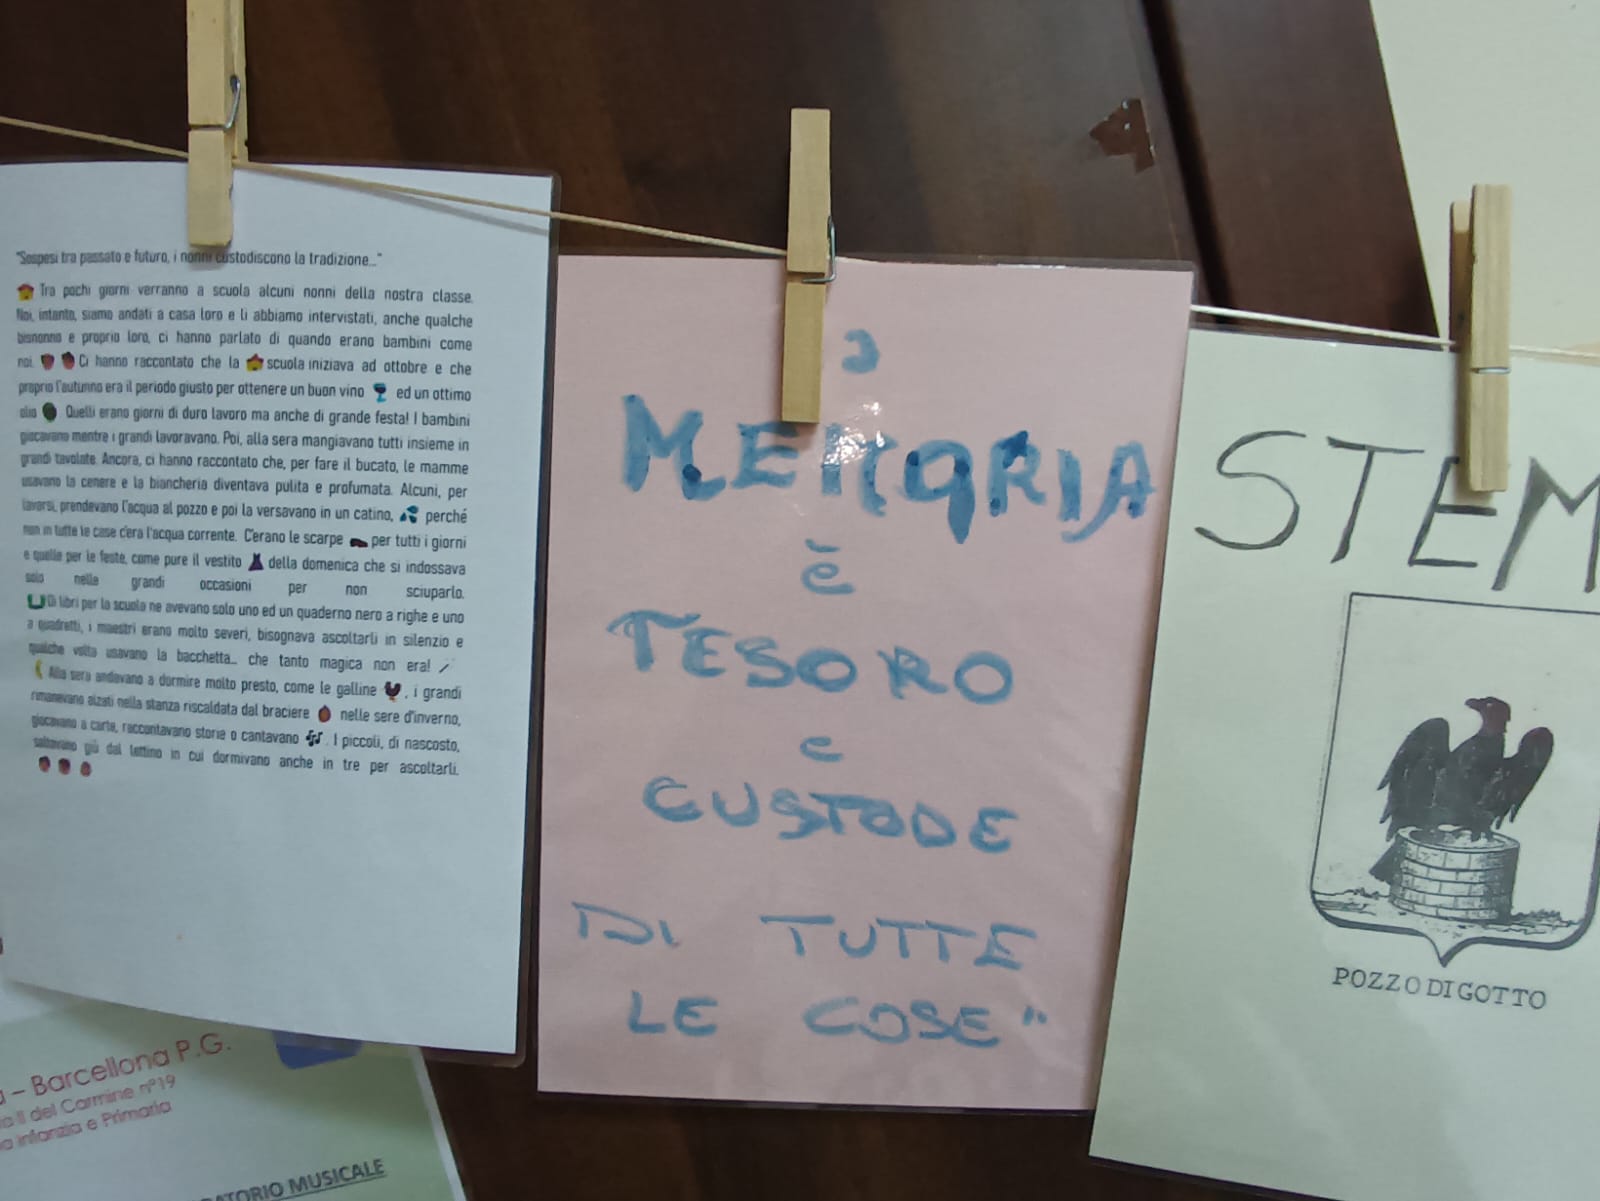 "Sospesi tra passato e futuro, i nonni custodiscono la tradizione..."
Tra pochi giorni verranno a scuola alcuni nonni della nostra classe.
Noi, intanto, siamo andati a casa loro e li abbiamo intervistati, anche qualche
bisnonno e proprio loro, ci hanno parlato di quando erano bambini come
noi. Ci hanno raccontato che la scuola iniziava ad ottobre e che
proprio l'autunno era il periodo giusto per ottenere un buon vino ed un ottimo
olio Quelli erano giorni di duro lavoro ma anche di grande festa! I bambini
giocavano mentre i grandi lavoravano. Poi, alla sera mangiavano tutti insieme in
grandi tavolate. Ancora, ci hanno raccontato che, per fare il bucato, le mamme
usavano la cenere e la biancheria diventava pulita e profumata. Alcuni, per
lavarsi, prendevano l'acqua al pozzo e poi la versavano in un catino, perché
non in tutte le case c'era l'acqua corrente. C'erano le scarpe per tutti i giorni
e quelle per le feste, come pure il vestito della domenica che si indossava
solo nelle grandi occasioni per non sciuparlo.
Di libri per la scuola ne avevano solo uno ed un quaderno nero a righe e uno
a quadretti, i maestri erano molto severi, bisognava ascoltarli in silenzio e
qualche volta usavano la bacchetta... che tanto magica non era!
Alla sera andavano a dormire molto presto, come le galline , i grandi
rimanevano alzati nella stanza riscaldata dal braciere nelle sere d'inverno,
giocavano a carte, raccontavano storie o cantavano . I piccoli, di nascosto,
saltavano giù dal lettino in cui dormivano anche in tre per ascoltarli.
MEMORIA
è
TESORO
e
CUSTODE
DI TUTTE
LE COSE"
STEM
POZZO DI GOTTO
– Barcellona P.G.
II del Carmine n°19
infanzia e Primaria
RATORIO MUSICALE